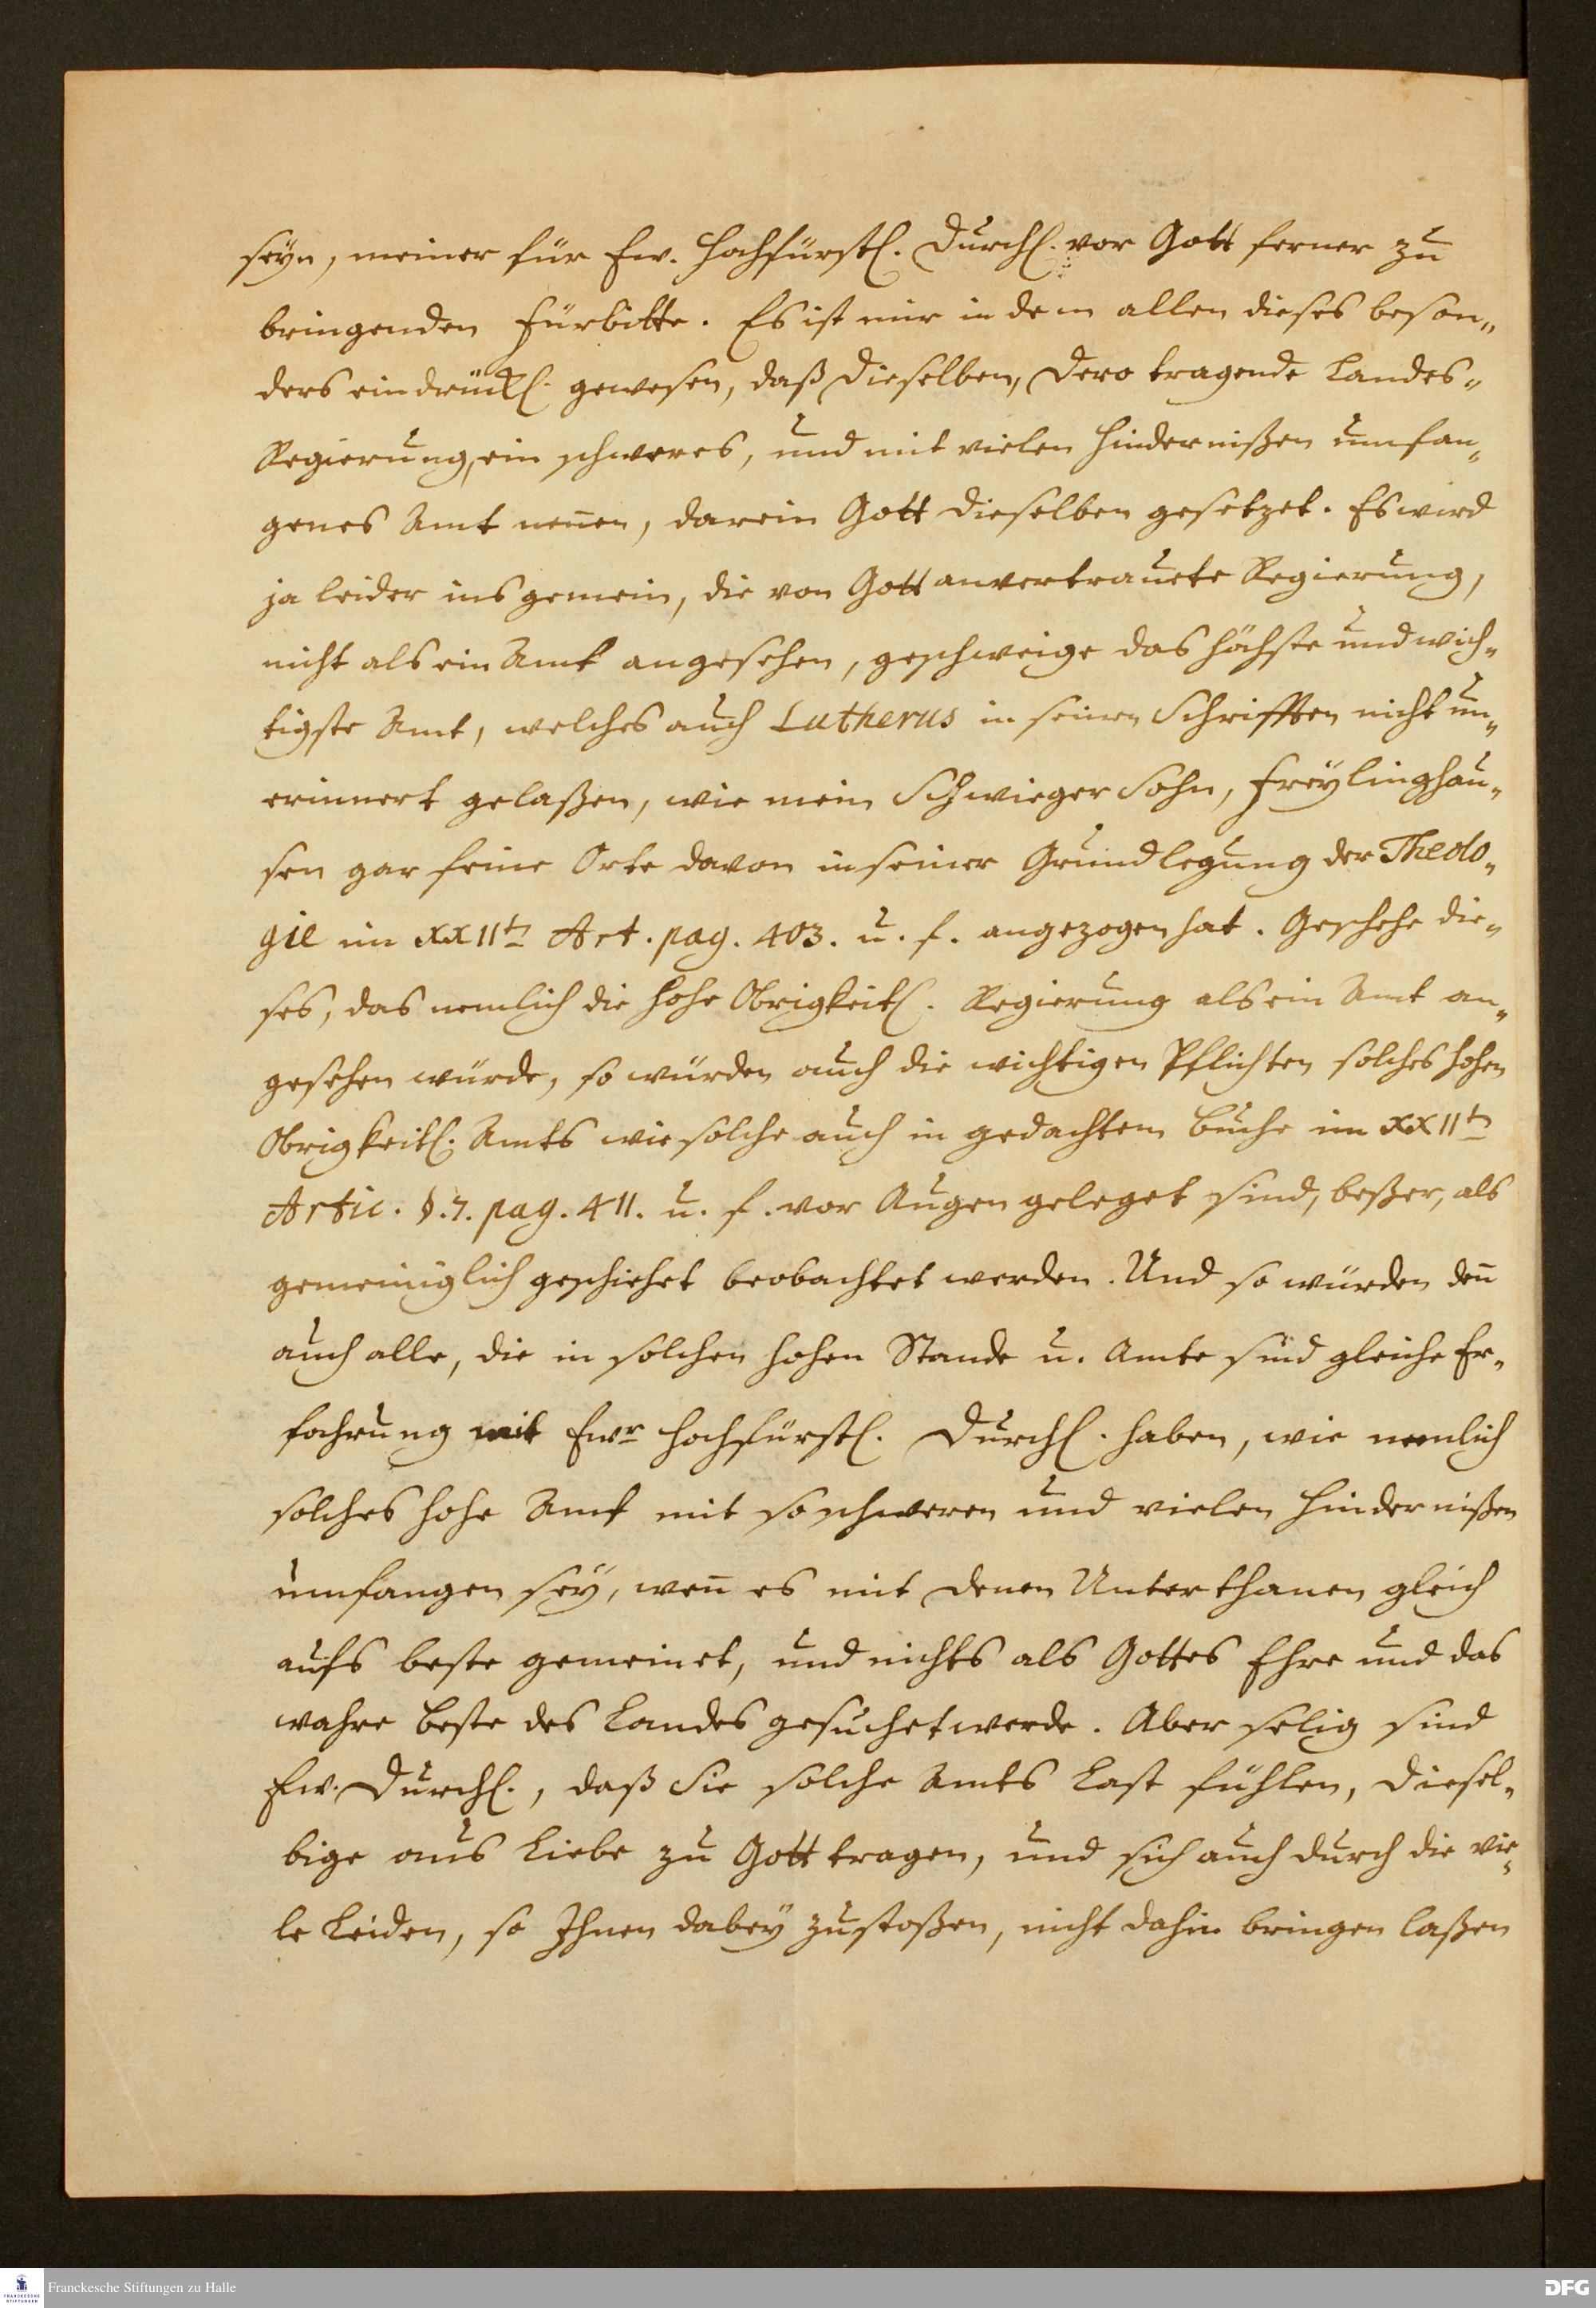 seyn, meiner für Ew. Hochfürstl. Durchl. vor Gott ferner zu
bringenden Fürbitte. Es ist mir in dem allen dieses beson„
ders eindrückl. gewesen, daß Dieselben, Dero tragende Landes„
Regierung, ein schweres, und mit vielen Hindernißen umfan„
genes Amt neñen, darein Gott Dieselben gesetzet. Es wird
ja leider ins gemein, die von Gott anvertrauete Regierung,
nicht als ein Amt angesehen, geschweige das höchste und wich„
tigste Amt, welches auch Lutherus in seinen Schrifften nicht un„
erinnert gelaßen, wie mein Schwieger Sohn, Freylinghau„
sen gar feine Orte davon in seiner Grundlegung der Theolo„
gie im XXIItn Art. pag. 403. u. f. angezogen hat. Geschehe die„
ses, das nemlich die hohe Obrigkeitl. Regierung als ein Amt an„
gesehen würde, so würden auch die wichtigen Pflichten solches hohen
Obrigkeitl. Amts wie solche auch in gedachtem Buche im XXIItn
Artic. §. 7. pag. 411. u. f. vor Augen geleget sind, beßer, als
gemeiniglich geschiehet beobachtet werden. Und so würden deñ
auch alle, die in solchen hohen Stande u. Amte sind gleiche Er„
fahrung mit Ewr Hochfürstl. Durchl. haben, wie nemlich
solches hohe Amt mit so schweren und vielen Hindernißen
umfangen sey, weñ es mit denen Unterthanen gleich
aufs beste gemeinet, und nichts als Gottes Ehre und das
wahre Beste des Landes gesuchet werde. Aber selig sind
Ew. Durchl., daß Sie solche Amts Last fühlen, diesel„
bige aus Liebe zu Gott tragen, und sich auch durch die vie„
le Leiden, so Ihnen dabey zustoßen, nicht dahin bringen laßen
Franckesche Stiftungen zu Halle
FRANCKESCHE STIFTUNGEN
DFG